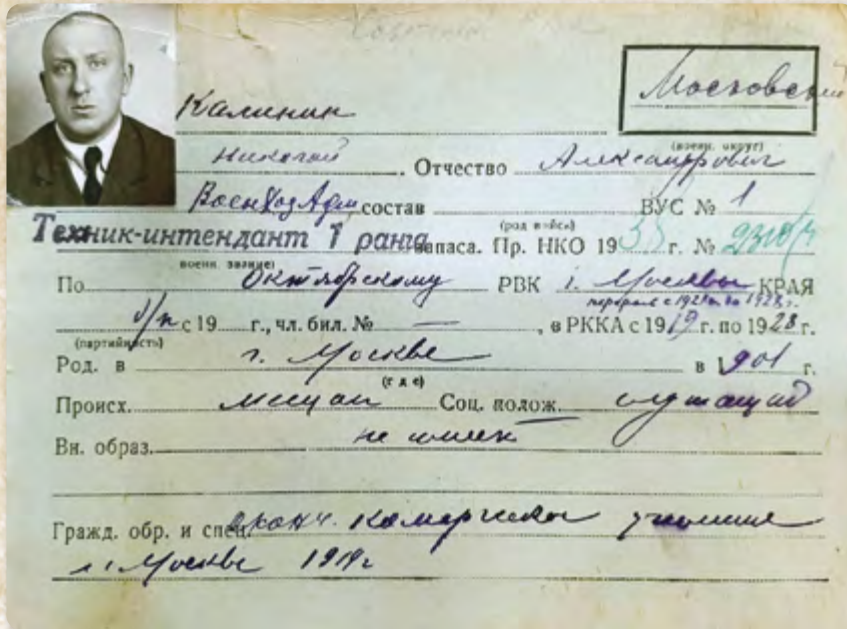 Московский
(военн. округ)
Калинин
Николай. Отчество Александрович
ВоенХозАдм состав ВУС № 1
(род войск)
Техник-интендант 1 ранга запаса. Пр. НКО 19 г. №
военн. звание)
По Октябрскому РВК г. Москвы КРАЯ
б/п с 19 г., чл. бил. № —, в РККА с 1919 г. по 1928 г.
(партийность)
Род. в г. Москве в 1901 г.
(где)
Происх. мещан Соц. полож. служащий
Вн. образ. не имеет
Гражд. обр. и спец. оконч. Комерческое училище
г. Москве 1919г